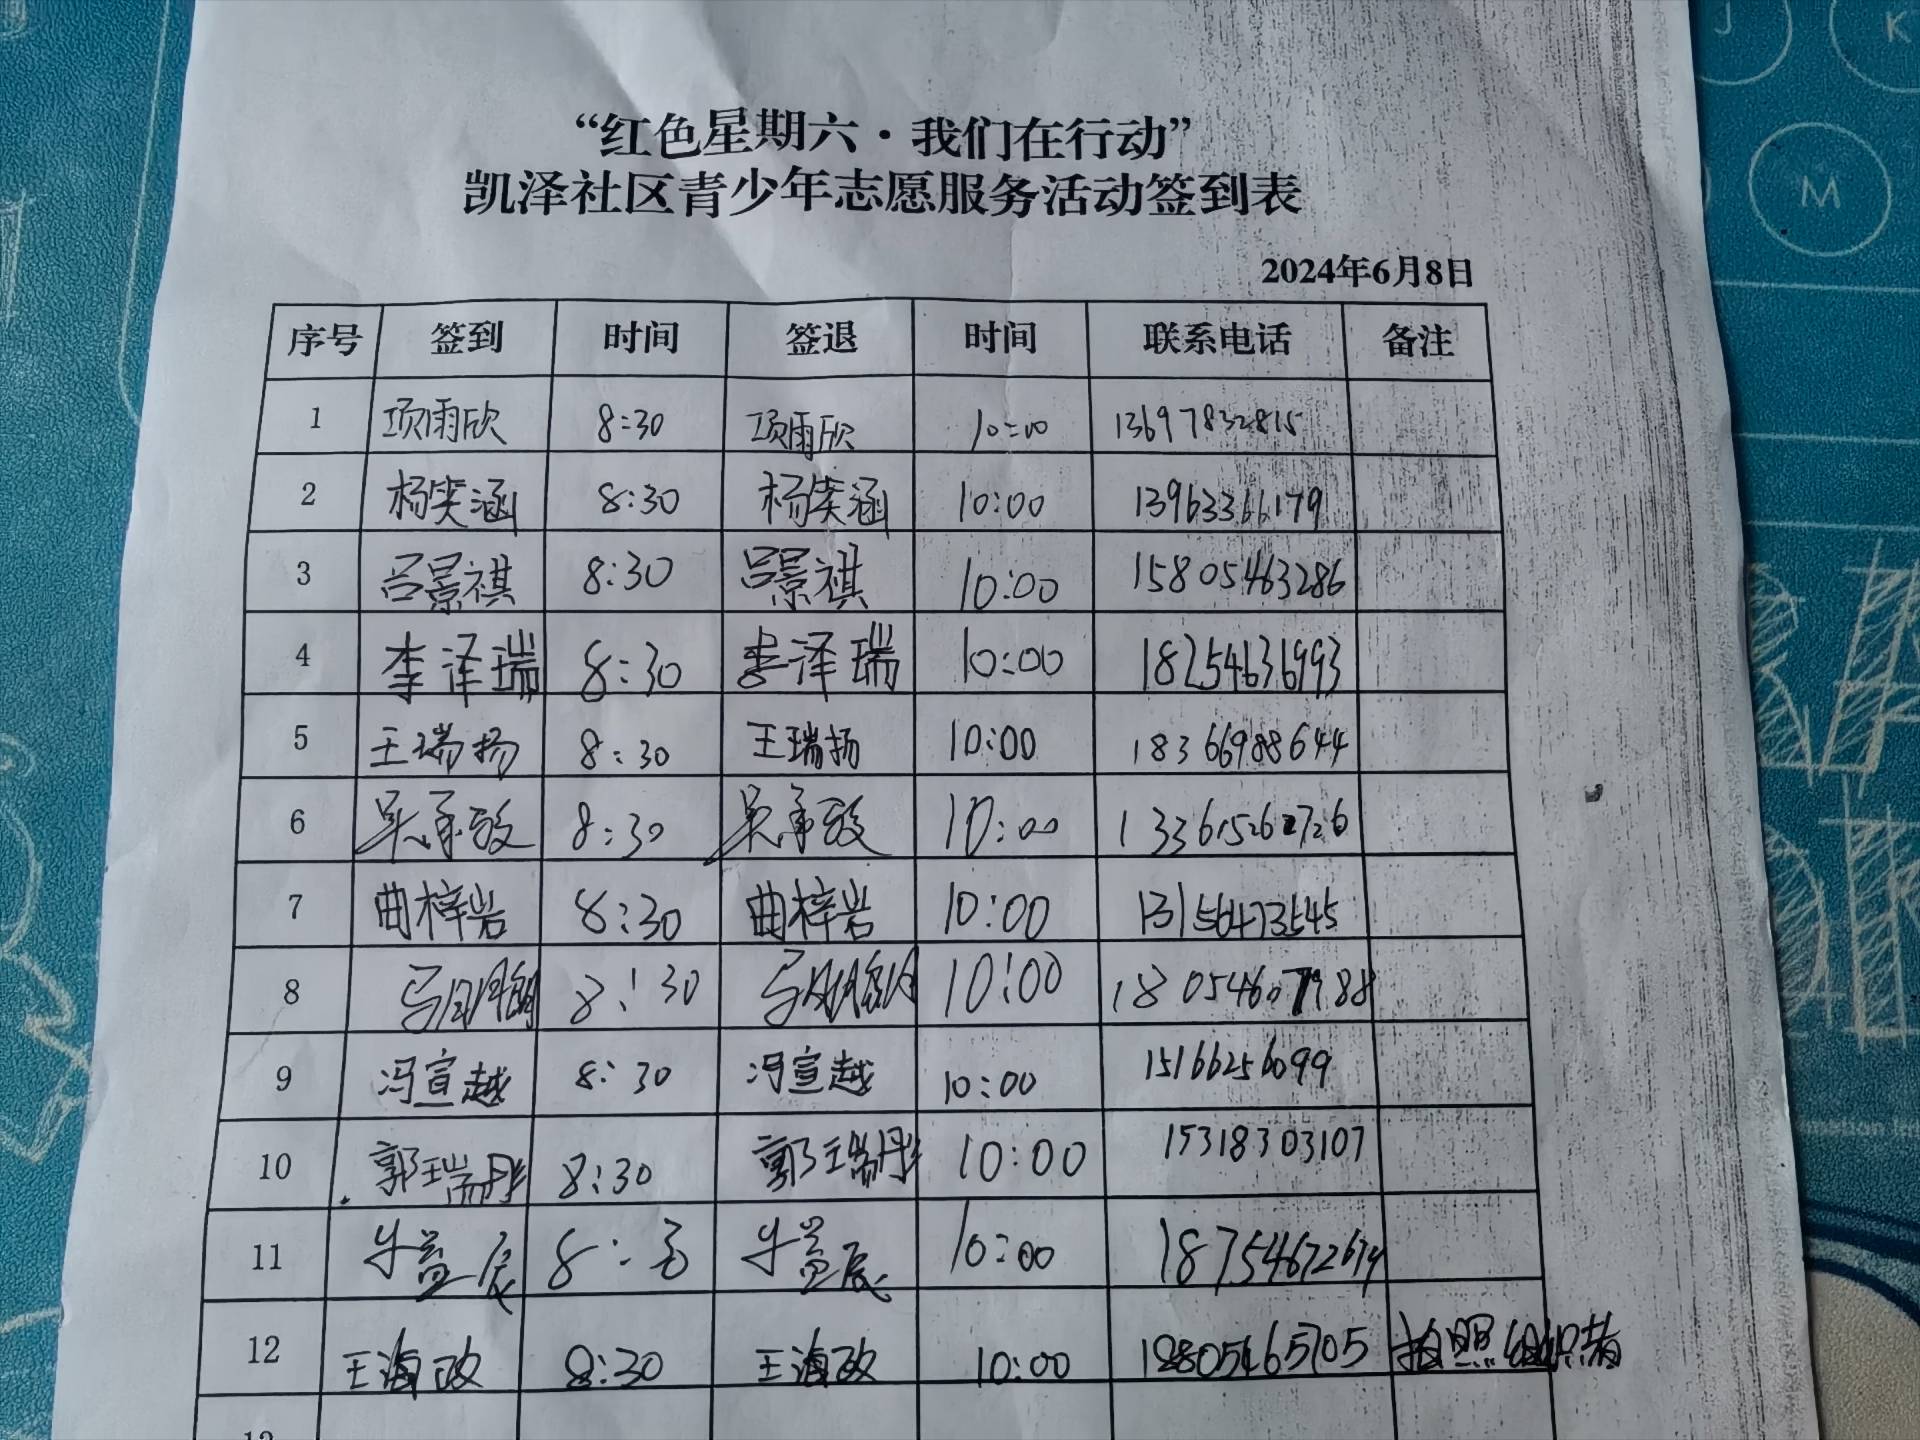 “红色星期六·我们在行动”
凯泽社区青少年志愿服务活动签到表
2024年6月8日
序号 签到 时间 签退 时间 联系电话 备注
1 项雨欣 8:30 项雨欣 10:00 13697832815
2 杨笑涵 8:30 杨笑涵 10:00 13963366179
3 吕景祺 8:30 吕景祺 10:00 15805463286
4 李泽瑞 8:30 李泽瑞 10:00 18254631993
5 王瑞扬 8:30 王瑞扬 10:00 18366988644
6 吴承致 8:30 吴承致 10:00
7 曲梓岩 8:30 曲梓岩 10:00 13156473545
8 8:30 10:00
9 冯宣越 8:30 冯宣越 10:00 15166256099
10 郭瑞彤 8:30 郭瑞彤 10:00 15318303107
11 牛益辰 8:30 牛益辰 10:00 18754672674
12 王海政 8:30 王海政 10:00 18805465705 拍照组织者
J
K
M